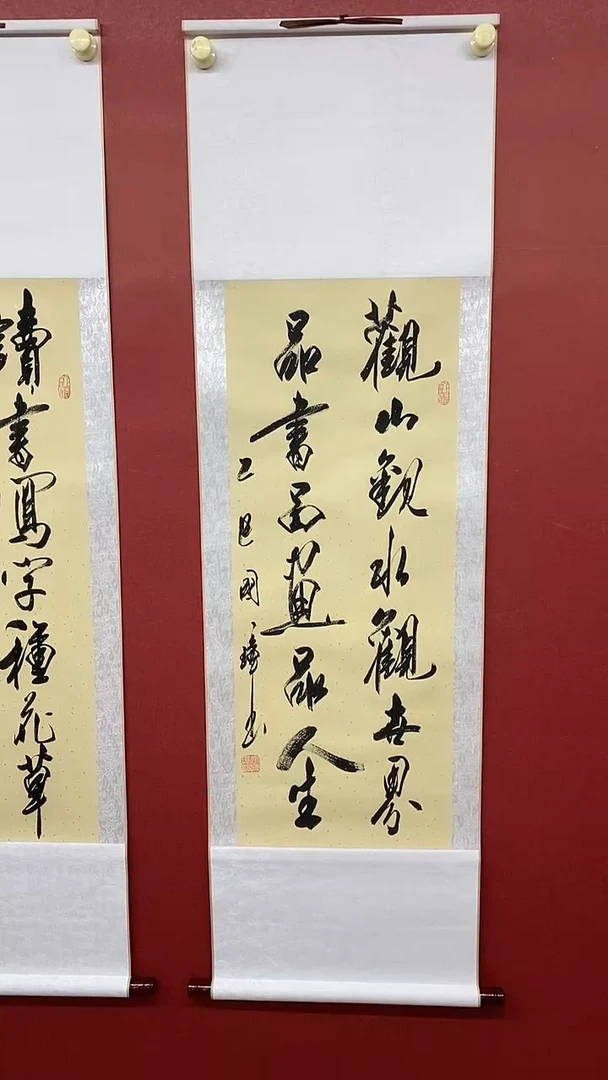 觀山觀水觀世界
品書品畫品人生
乙巳國璋書
讀書寫字種花草